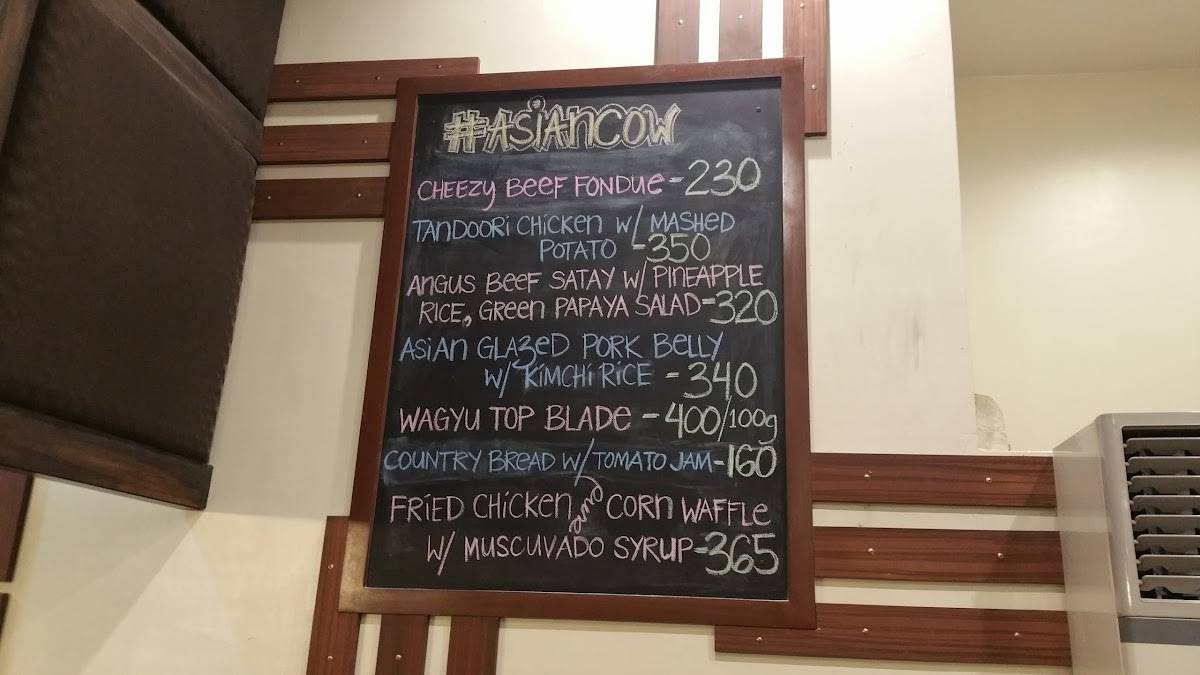 #ASiANCOW
CHEEZY BEEF FONDUE - 230
TANDOORI CHICKEN W/ MASHED
POTATO - 350
ANGUS BEEF SATAY W/ PINEAPPLE
RICE, GREEN PAPAYA SALAD - 320
ASiAN GLAZED PORK BELLY
W/ KIMCHI RICE - 340
WAGYU TOP BLADE - 400/100g
COUNTRY BREAD W/ TOMATO JAM - 160
FRIED CHICKEN and CORN WAFFLE
W/ MUSCUVADO SYRUP - 365